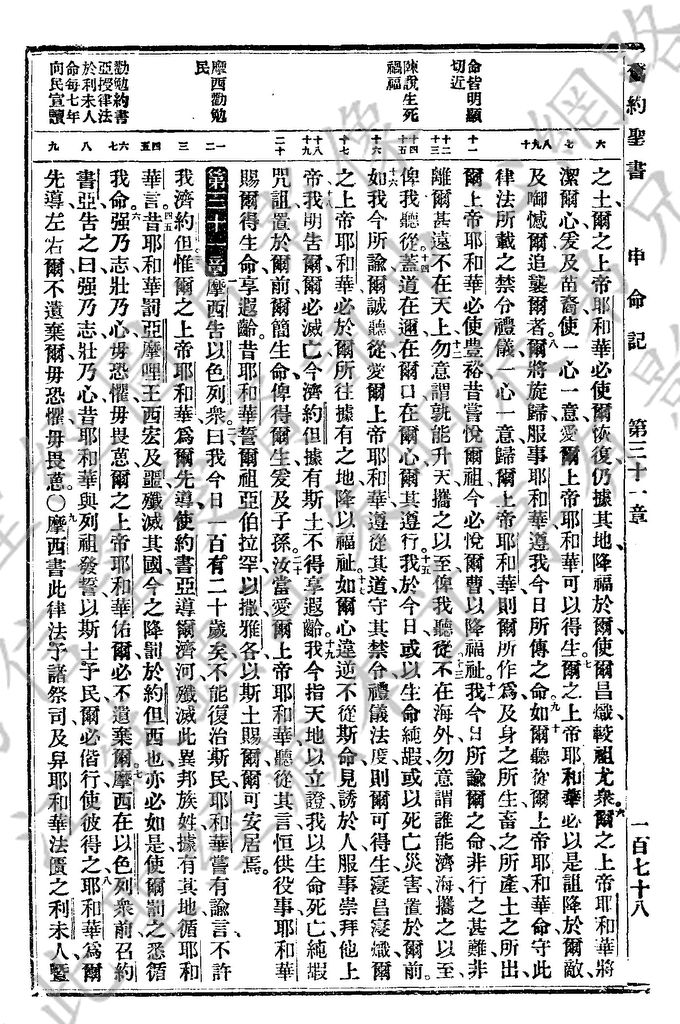 舊約聖書 申命記 第三十一章 一百七十八
命皆明顯
切近
陳說生死
禍福
摩西勸勉
民
勸勉約書
亞授律法
於利未人
命每七年
向民宣讀
六 七 八九 十 十一 十二 十三 十四 十五 十六 十七 十八 十九 二十 一二 三 四五 六七 八 九
之土爾之上帝耶和華必使爾恢復仍據其地降福於爾使爾昌熾較祖尤衆六爾之上帝耶和華將
潔爾心爰及苗裔使一心一意愛爾上帝耶和華可以得生七爾之上帝耶和華必以是詛降於爾敵
及啣憾爾追襲爾者八爾將旋歸服事耶和華遵我今日所傳之命九十如爾聽從爾上帝耶和華命守此
律法所載之禁令禮儀一心一意歸爾上帝耶和華則爾所作爲及身之所生畜之所產土之所出
爾上帝耶和華必使豐裕昔嘗悅爾祖今必悅爾曹以降福祉十一我今日所諭爾之命非行之甚難非
離爾甚遠十二不在天上勿意謂孰能升天攜之以至俾我聽從十三不在海外勿意謂誰能濟海攜之以至
俾我聽從十四蓋道在邇在爾口在爾心爾其遵行十五我於今日或以生命純嘏或以死亡災害置於爾前
十六如我今所諭爾誠聽從愛爾上帝耶和華遵從其道守其禁令禮儀法度則爾可得生寖昌寖熾爾
之上帝耶和華必於爾所往據有之地降以福祉十七如爾心違逆不從斯命見誘於人服事崇拜他上
帝十八我明告爾爾必滅亡今濟約但據有斯土不得享遐齡十九我今指天地以立證我以生命死亡純嘏
咒詛置於爾前爾簡生命俾得爾生爰及子孫二十汝當愛爾上帝耶和華聽從其言恒供役事耶和華
賜爾得生命享遐齡昔耶和華誓爾祖亞伯拉罕以撒雅各以斯土賜爾爾可安居焉
第三十一章一摩西告以色列衆曰二我今日一百有二十歲矣不能復治斯民耶和華嘗有諭言不許
我濟約但三惟爾之上帝耶和華爲爾先導使約書亞導爾濟河殲滅此異邦族姓據有其地循耶和
華言四五昔耶和華罰亞摩哩王西宏及噩殲滅其國今之降罰於約但西也亦必如是使爾罰之悉循
我命六强乃志壯乃心毋恐懼毋畏葸爾之上帝耶和華佑爾必不遺棄爾七摩西在以色列衆前召約
書亞告之曰强乃志壯乃心昔耶和華與列祖發誓以斯土予民爾必偕行使彼得之八耶和華爲爾
先導左右爾不遺棄爾毋恐懼毋畏葸〇九摩西書此律法予諸祭司及舁耶和華法匱之利未人暨